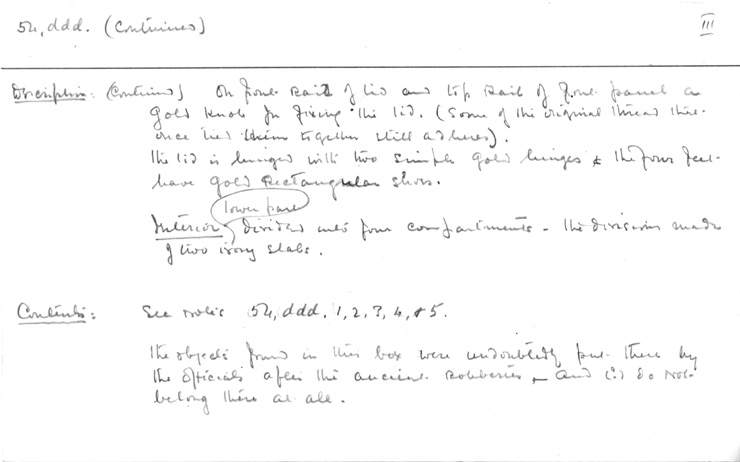 54, ddd. (Continued) III
Description: (Continued) On front rail of lid and top rail of front panel a
gold knob for fixing the lid. (Some of the original thread that
once tied them together still adheres).
The lid is hinged with two simple gold hinges & the four feet
have gold rectangular shoes.
lower part
Interior divided into four compartments - the division made
of two ivory slabs.
Contents: See notes 54, ddd. 1, 2, 3, 4, & 5.
The objects found in this box were undoubtedly put there by
the officials after the ancient robberies, - and do not
belong there at all.